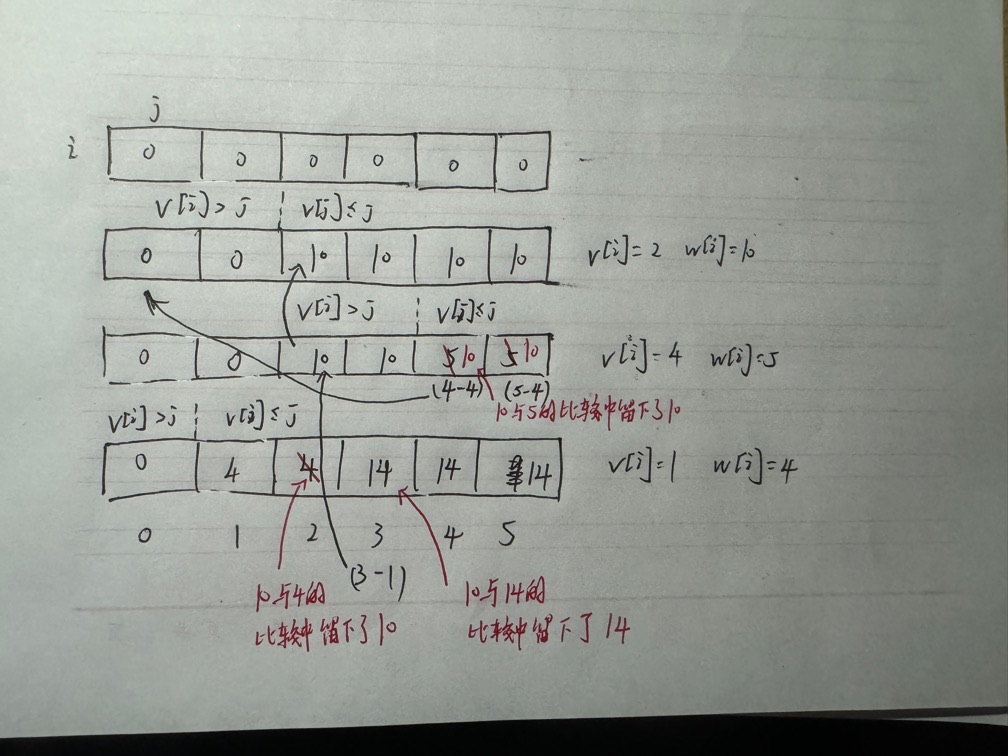 j
i 0 0 0 0 0 0
v[i]>j v[j]≤j
0 0 10 10 10 10 v[i]=2 w[i]=10
v[i]>j v[j]≤j
0 0 10 10 5 10 5 10 v[i]=4 w[i]=5
(4-4) (5-4)
10与5的比较中留下了10
v[i]>j v[i]≤j
0 4 4 14 14 14 v[i]=1 w[i]=4
0 1 2 3 4 5
(3-1)
10与4的
比较中留下了10
10与14的
比较中留下了14